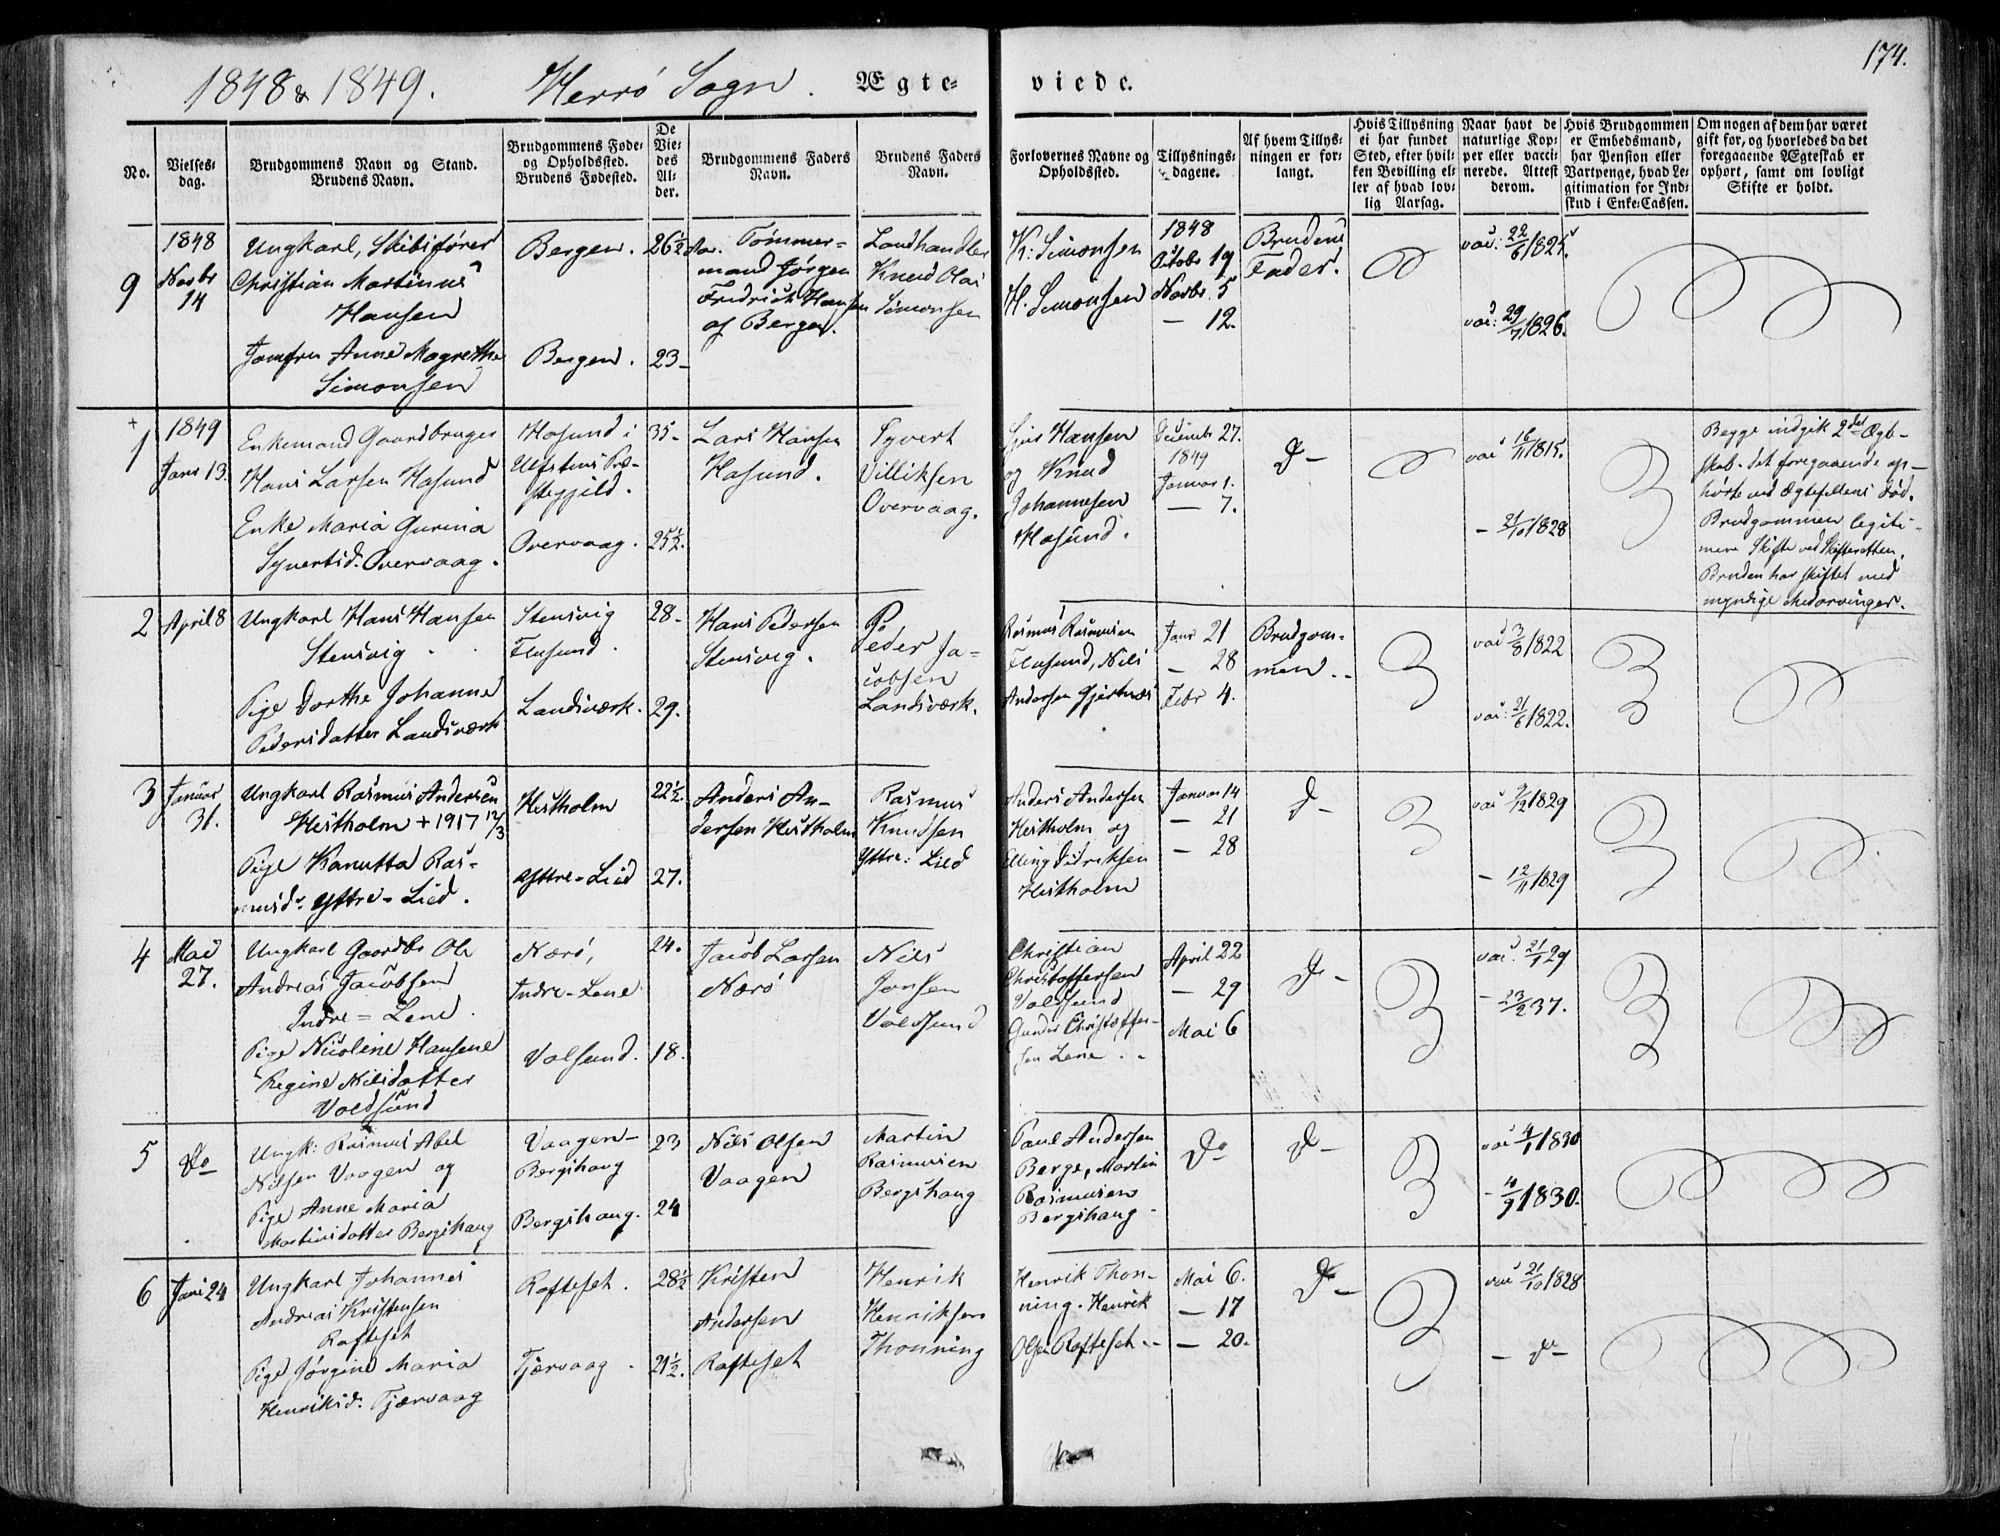 174.
1848 & 1849. Herrø Sogn. Ægte-viede.
No.
Vielses-
dag.
Brudgommens Navn og Stand.
Brudens Navn.
Brudgommens Føde-
og Opholdssted.
Brudens Fødested.
De
Vie-
des
Al-
der.
Brudgommens Faders
Navn.
Brudens Faders
Navn.
Forlovernes Navne og
Opholdssted.
Tillysnings-
dagene.
Af hvem Tillys-
ningen er for-
langt.
Hvis Tillysning
ei har fundet
Sted, efter hvil-
ken Bevilling el-
ler af hvad lov-
lig Aarsag.
Naar havt de
naturlige Kop-
per eller vacci-
nerede. Attest
derom.
Hvis Brudgommen
er Embedsmand,
har Pension eller
Vartpenge, hvad Le-
gitimation for Ind-
skud i Enke-Cassen.
Om nogen af dem har været
gift før, og hvorledes da det
foregaaende Ægteskab er
ophørt, samt om lovligt
Skifte er holdt.
9
1848
Novbr
14
Ungkarl, Skibsfører
Christian Martinus
Hansen
Jomfru Anne Magrethe
Simonsen
Bergen.
Bergen.
26½
23
Tømmer-
mand Jørgen
Fredrich Hansen
af Bergen.
Landhandler
Knud Olai
Simonsen
K: Simonsen
H. Simonsen
1848
Octobr 19
Novbr. 5
— 12.
Brudens
Fader.
vac: 22/6 1825.
vac: 29/7 1826.
1
1849
Janr 13.
Enkemand Gaardbruger
Hans Larsen Hasund
Enke Maria Gurina
Syvertsd. Overvaag.
Hasund i
Ulfstens Præ-
stegjeld.
Overvaag.
35.
25½.
Lars Hansen
Hasund.
Syvert
Villiksen
Overvaag.
Hansen
og Knud
Johannesen
Hasund.
Decembr 27.
1849
Januar 1.
— 7.
D—
vac 16/11 1815.
— 21/10 1828
Begge indgik 2det Ægte-
skab. det foregaaende op-
hørte ved Ægtefellens Død.
Brudgommen legiti-
mere Skifte ved Skifteretten.
Bruden har skiftet med
myndige Medarvinger.
2
April 8
Ungkarl Hans Hansen
Stensvig
Pige Dorthe Johanne
Pedersdatter Landsværk
Stensvig
Flusund.
Landsværk.
28.
29.
Hans Pedersen
Stensvig.
Peder Ja-
cobsen
Landsværk.
Rasmus Rasmusen
Flusund, Nils
Andersen Gjertnæs
Janr 21
— 28
Febr 4.
Brudgom-
men..
vac 3/8 1822
vac: 21/6 1822.
3
Januar
31.
Ungkarl Rasmus Andersen
Hestholm + 1917 12/3
Pige Kanutta Ras-
musdr Yttre-Lied.
Hestholm
Yttre-Lied
22½.
27.
Anders An-
dersen Hestholm
Rasmus
Knudsen
Yttre: Lied
Anders Andersen
Hestholm og
Elling Didriksen
Hestholm
Januar 14
— 21
— 28
D—
vac 9/12 1829
— 12/11 1829
4
Mai
27.
Ungkarl Gaardbr Ole
Andreas Jacobsen
Indre = Lene.
Pige Nicoline Hansene
Regine Nilsdatter
Voldsund
Nærø,
Indre-Lene
Volsund.
24.
18.
Jacob Larsen
Nærø
Nils
Jonsen
Voldsund
Christian
Christoffersen
Voldsund
Gunder Christoffer-
sen Lene..
April 22
— 29
Mai 6
D—
vac. 21/1 29
— 23/2 37.
5
Do
Ungk: Rasmus Abel
Nilsen Vaagen og
Pige Anne Maria
Martinsdatter Bergshaug
Vaagen-
Bergshaug
Bergshaug.
23
24
Nils Olsen
Vaagen
Martin
Rasmusen
Bergshaug
Paul Andersen
Berge, Martin
Rasmusen
Bergshaug
Do
D—
vac 4/1 1830
— 4/9 1830.
6
Juni 24
Ungkarl Johannes
Andreas Kristensen
Rafteset
Pige Jørgine Maria
Henriksd. Tjærvaag
Rafteset.
Tjærvaag.
28½
21½.
Kristen
Andersen
Rafteset
Henrik
Henriksen
Thonning
Henrik Thon-
ning. Henrik
Olsen Rafteset
Mai 6.
— 17
— 20.
D—
vac 21/10 1828
— Do